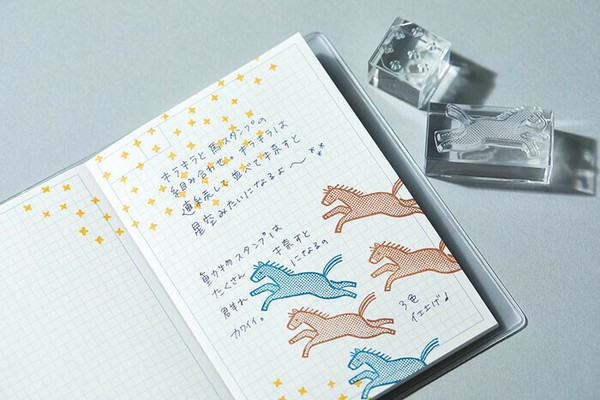 キラキラと馬スタンプの
組み合わせ。キラキラは
連続して並べて押すと
星空みたいになるよ〜
動物スタンプは
たくさん押すと
群れになるの
カワイイ。
3色
イエエイ♪